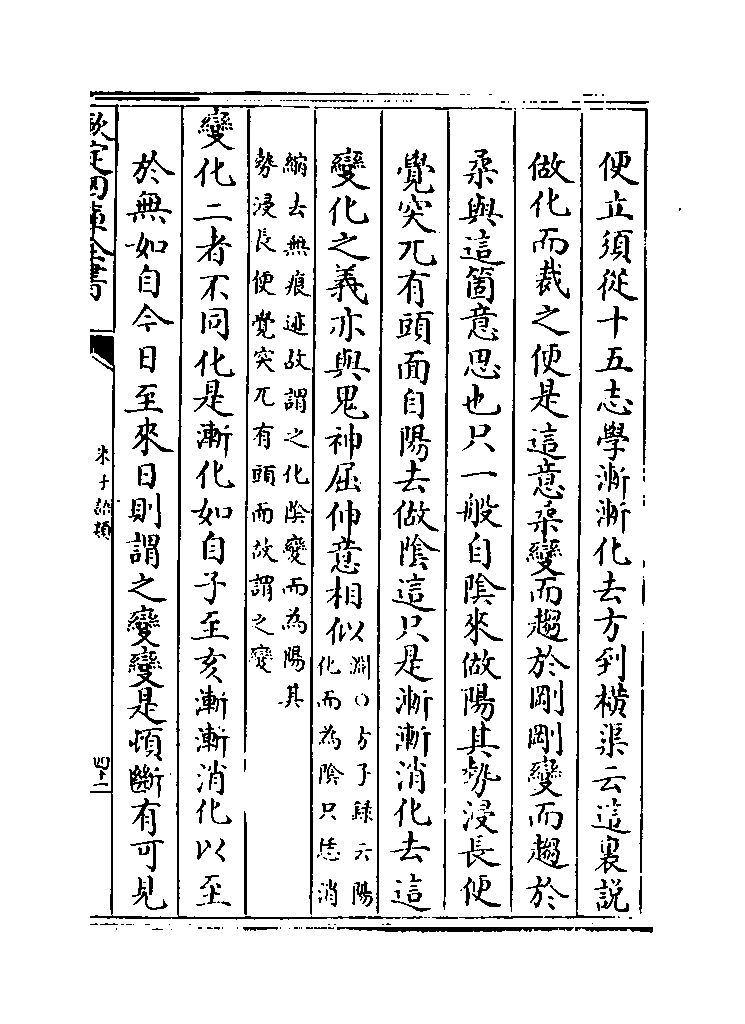 便立須從十五志學漸漸化去方到橫渠云這裏說
做化而裁之便是這意柔變而趨於剛剛變而趨於
柔與這箇意思也只一般自隂來做陽其勢浸長便
覺突兀有頭面自陽去做隂這只是漸漸消化去這
變化之義亦與鬼神屈伸意相似淵〇方子録云陽
化而為隂只恁消
縮去無痕迹故謂之化隂變而為陽其
勢浸長便覺突兀有頭面故謂之變
變化二者不同化是漸化如自子至亥漸漸消化以至
於無如自今日至來日則謂之變變是頓斷有可見
欽定四庫全書
朱子語類
四十二